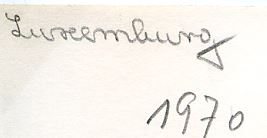 Luxemburg
1970